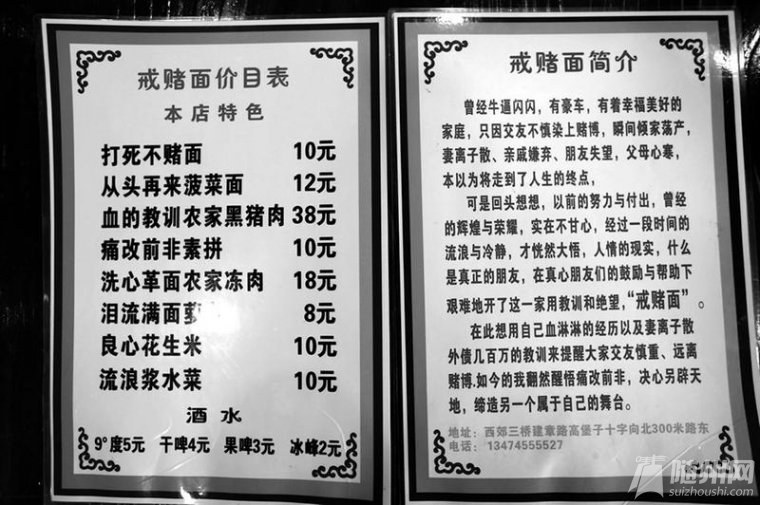 戒赌面价目表
本店特色
打死不赌面 10元
从头再来菠菜面 12元
血的教训农家黑猪肉 38元
痛改前非素拼 10元
洗心革面农家冻肉 18元
泪流满面 8元
良心花生米 10元
流浪浆水菜 10元
酒水
9°度5元 干啤4元 果啤3元 冰峰2元
戒赌面简介
曾经牛逼闪闪，有豪车，有着幸福美好的
家庭，只因交友不慎染上赌博，瞬间倾家荡产，
妻离子散、亲戚嫌弃、朋友失望，父母心寒，
本以为将走到了人生的终点，
可是回头想想，以前的努力与付出，曾经
的辉煌与荣耀，实在不甘心，经过一段时间的
流浪与冷静，才恍然大悟，人情的现实，什么
是真正的朋友，在真心朋友们的鼓励与帮助下
艰难地开了这一家用教训和绝望，“戒赌面”。
在此想用自己血淋淋的经历以及妻离子散
外债几百万的教训来提醒大家交友慎重、远离
赌博.如今的我翻然醒悟痛改前非，决心另辟天
地，缔造另一个属于自己的舞台。
地址：西郊三桥建章路高堡子十字向北300米路东
电话：13474555527
随州网
suizhoushi.com